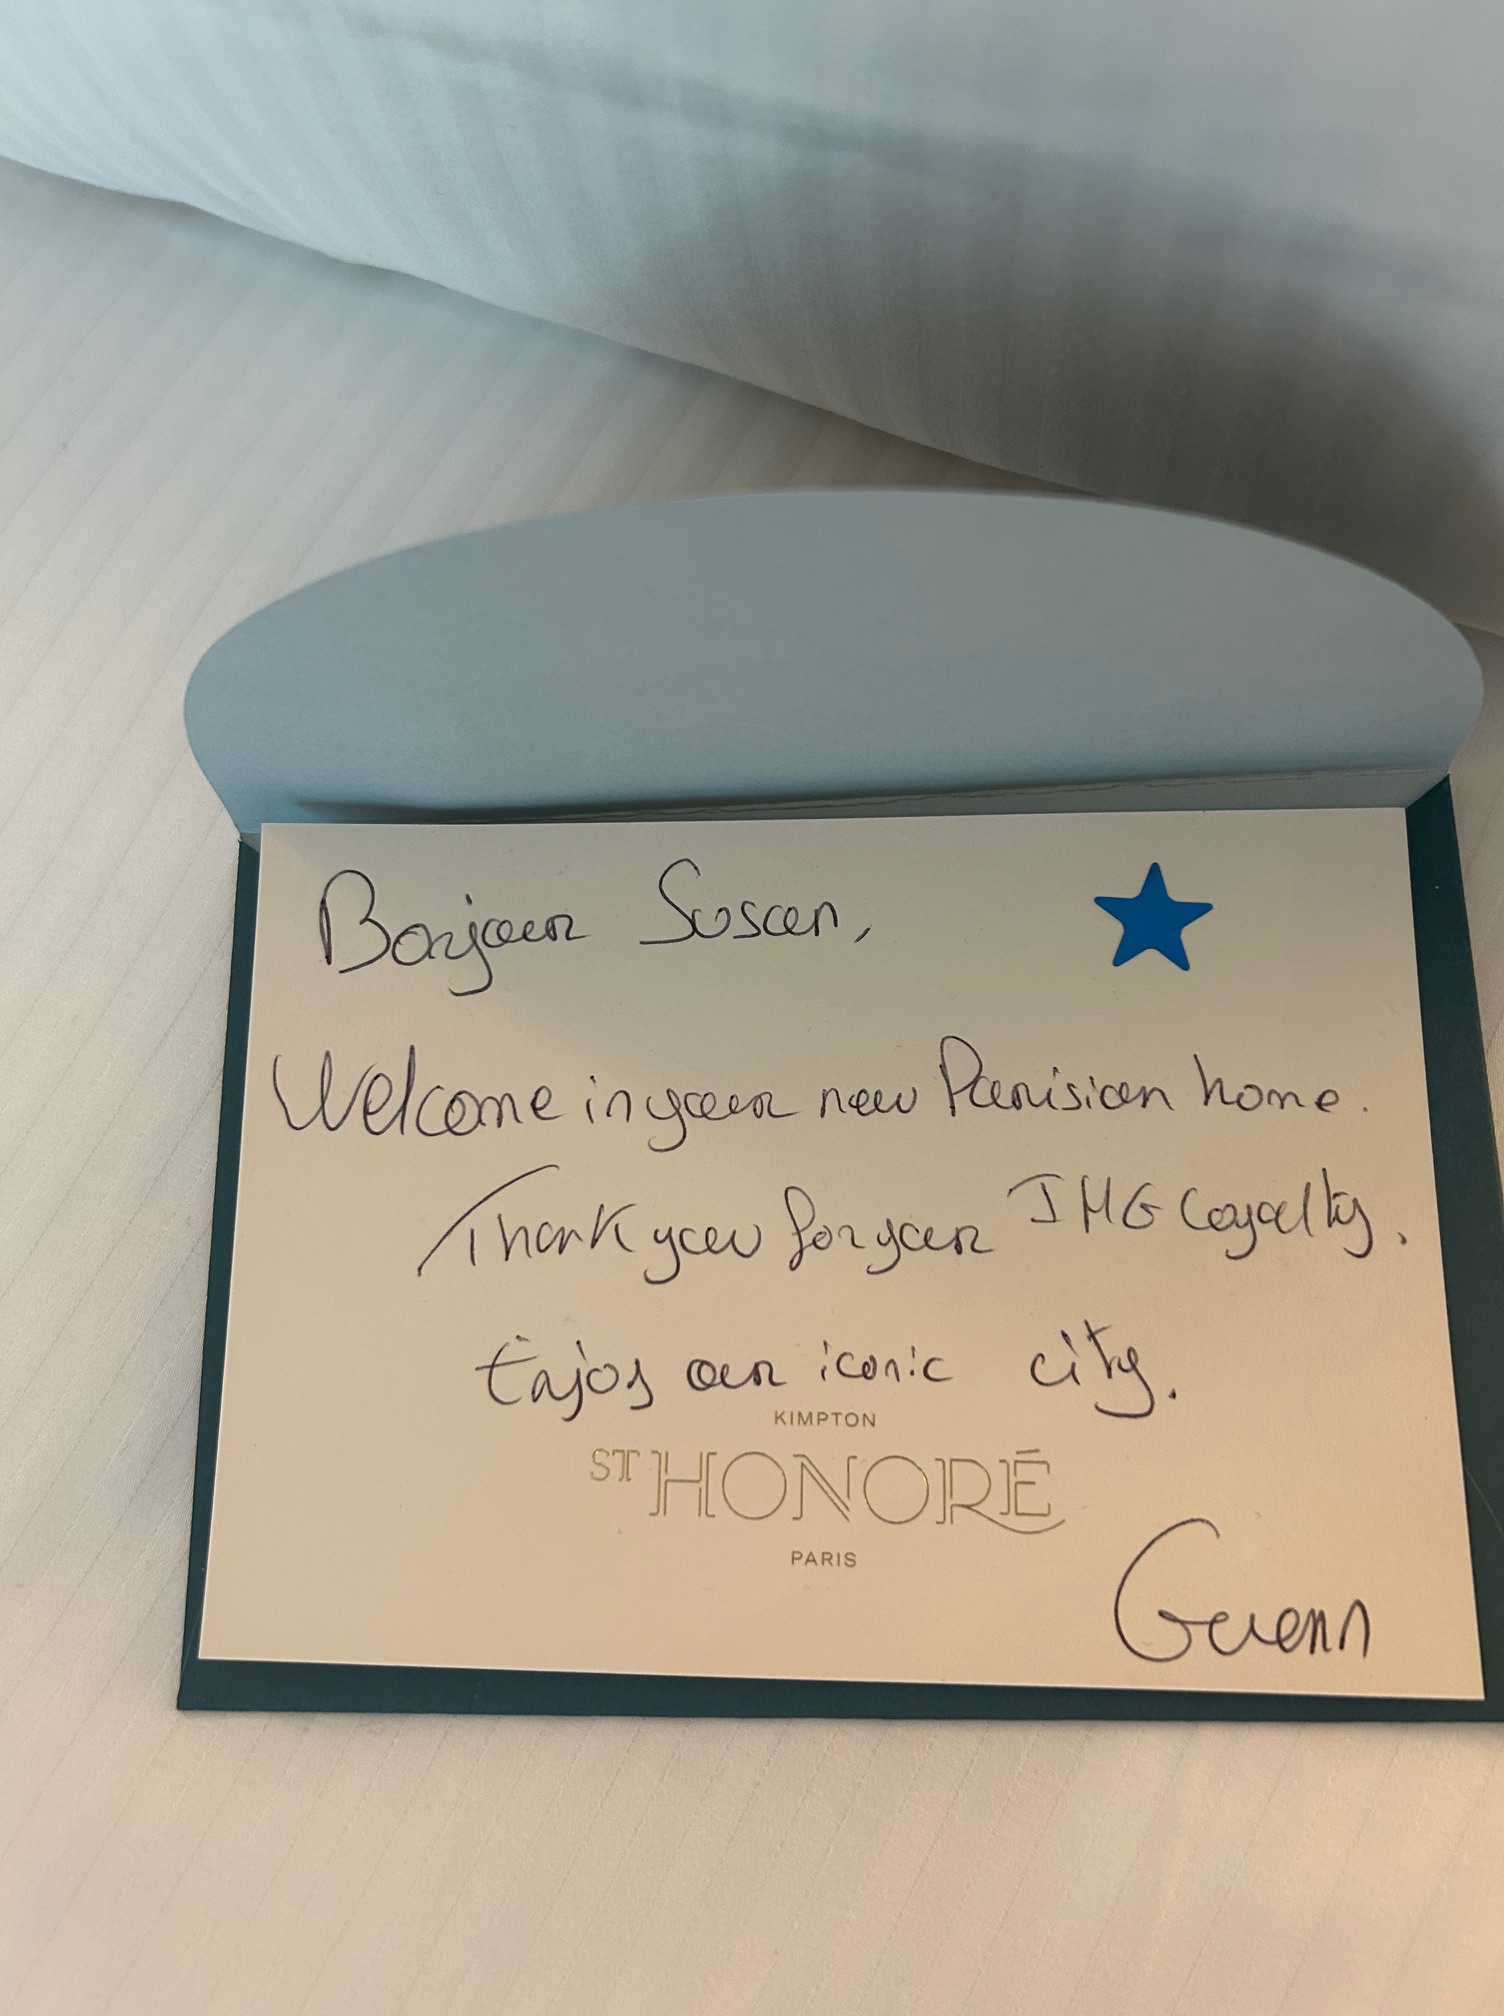 Bonjour Susan,
Welcome in your new Parisian home.
Thank you for your IHG Loyalty.
Enjoy our iconic city.
KIMPTON
ST HONORÉ
PARIS
Gwenn